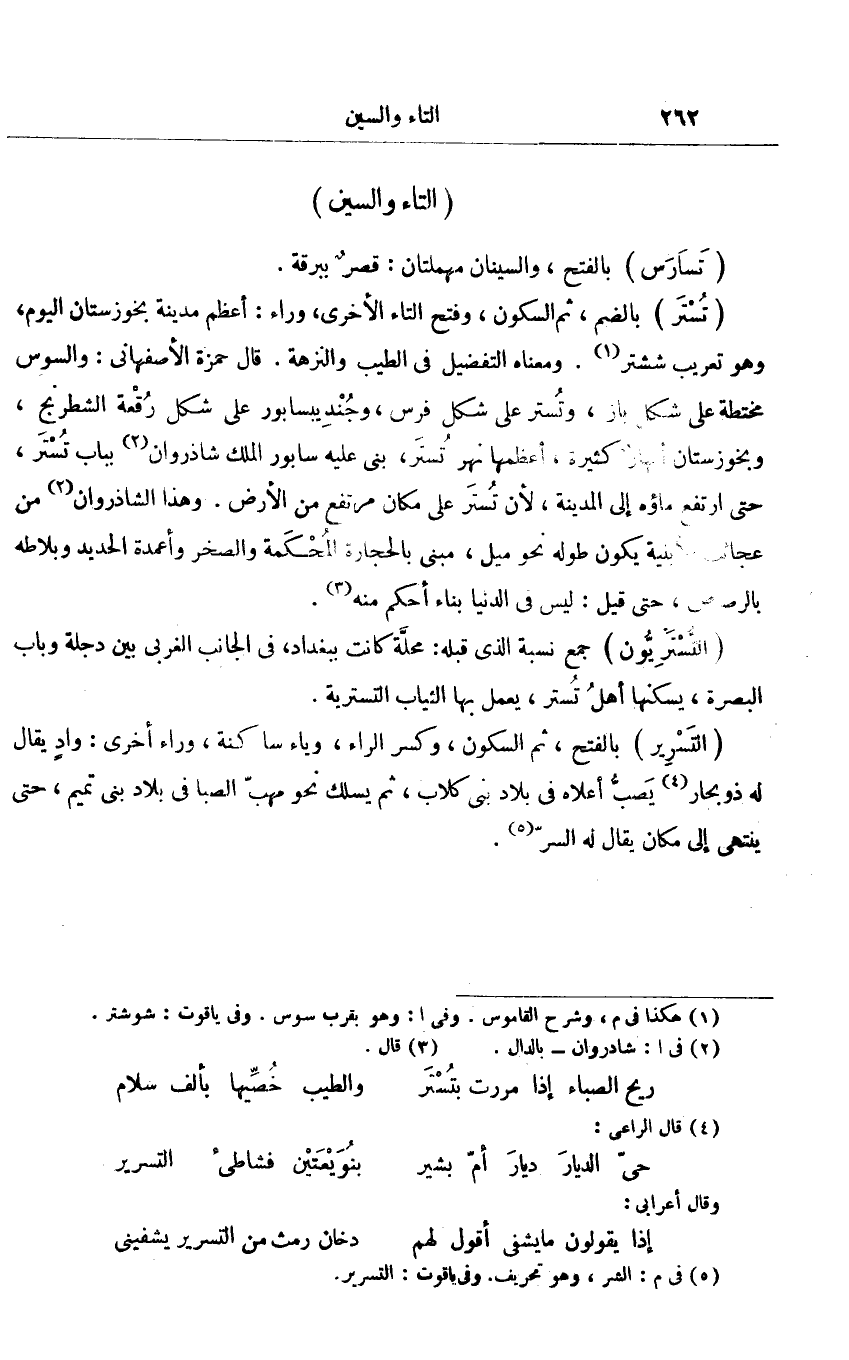 ٢٦٢ التاء والسين
( التاء والسين )
( تَسَارَس ) بالفتح ، والسينان مهملتان : قصرٌ ببرقة .
( تُسْتَر ) بالضم ، ثم السكون ، وفتح التاء الأخرى، وراء : أعظم مدينة بخوزستان اليوم،
وهو تعريب ششتر(١) . ومعناه التفضيل فى الطيب والنزهة . قال حمزة الأصفهانى : والسوس
مختطة على شكل باز ، وتُستر على شكل فرس ، وجُنْديسابور على شكل رُقْعة الشطرنج ،
وبخوزستان أنهار كثيرة ، أعظمها نهر تُستَر، بنى عليه سابور الملك شاذروان(٢) بباب تُسْتَر ،
حتى ارتفع ماؤه إلى المدينة ، لأن تُستَر على مكان مرتفع من الأرض . وهذا الشاذروان(٢) من
عجائب الأبنية يكون طوله نحو ميل ، مبنى بالحجارة المُحْكَمة والصخر وأعمدة الحديد وبلاطه
بالرصاص ، حتى قيل : ليس فى الدنيا بناء أحكم منه(٣) .
( التُسْتَرِيُّون ) جمع نسبة الذى قبله: محلَّة كانت ببغداد، فى الجانب الغربى بين دجلة وباب
البصرة ، يسكنها أهلُ تُستر ، يعمل بها الثياب التسترية .
( التَسْرِير ) بالفتح ، ثم السكون ، وكسر الراء ، وياء ساكنة ، وراء أخرى : وادٍ يقال
له ذو بحار(٤) يَصبُّ أعلاه فى بلاد بنى كلاب ، ثم يسلك نحو مهبّ الصبا فى بلاد بنى تميم ، حتى
ينتهى إلى مكان يقال له السرّ(٥) .
(١) هكذا فى م ، وشرح القاموس . وفى ا : وهو بقرب سوس . وفى ياقوت : شوشتر .
(٢) فى ا : شادروان – بالدال . (٣) قال .
ريح الصباء إذا مررت بتُسْتَر والطيب خُصِّيها بألف سلام
(٤) قال الراعى :
حىّ الديارَ ديارَ أمّ بشير بنُوَيْعَتَيْن فشاطئُ التسرير
وقال أعرابى :
إذا يقولون ما يشفى أقول لهم دخان رمث من التسرير يشفينى
(٥) فى م : الشر ، وهو تحريف. وفى ياقوت : التسرير.